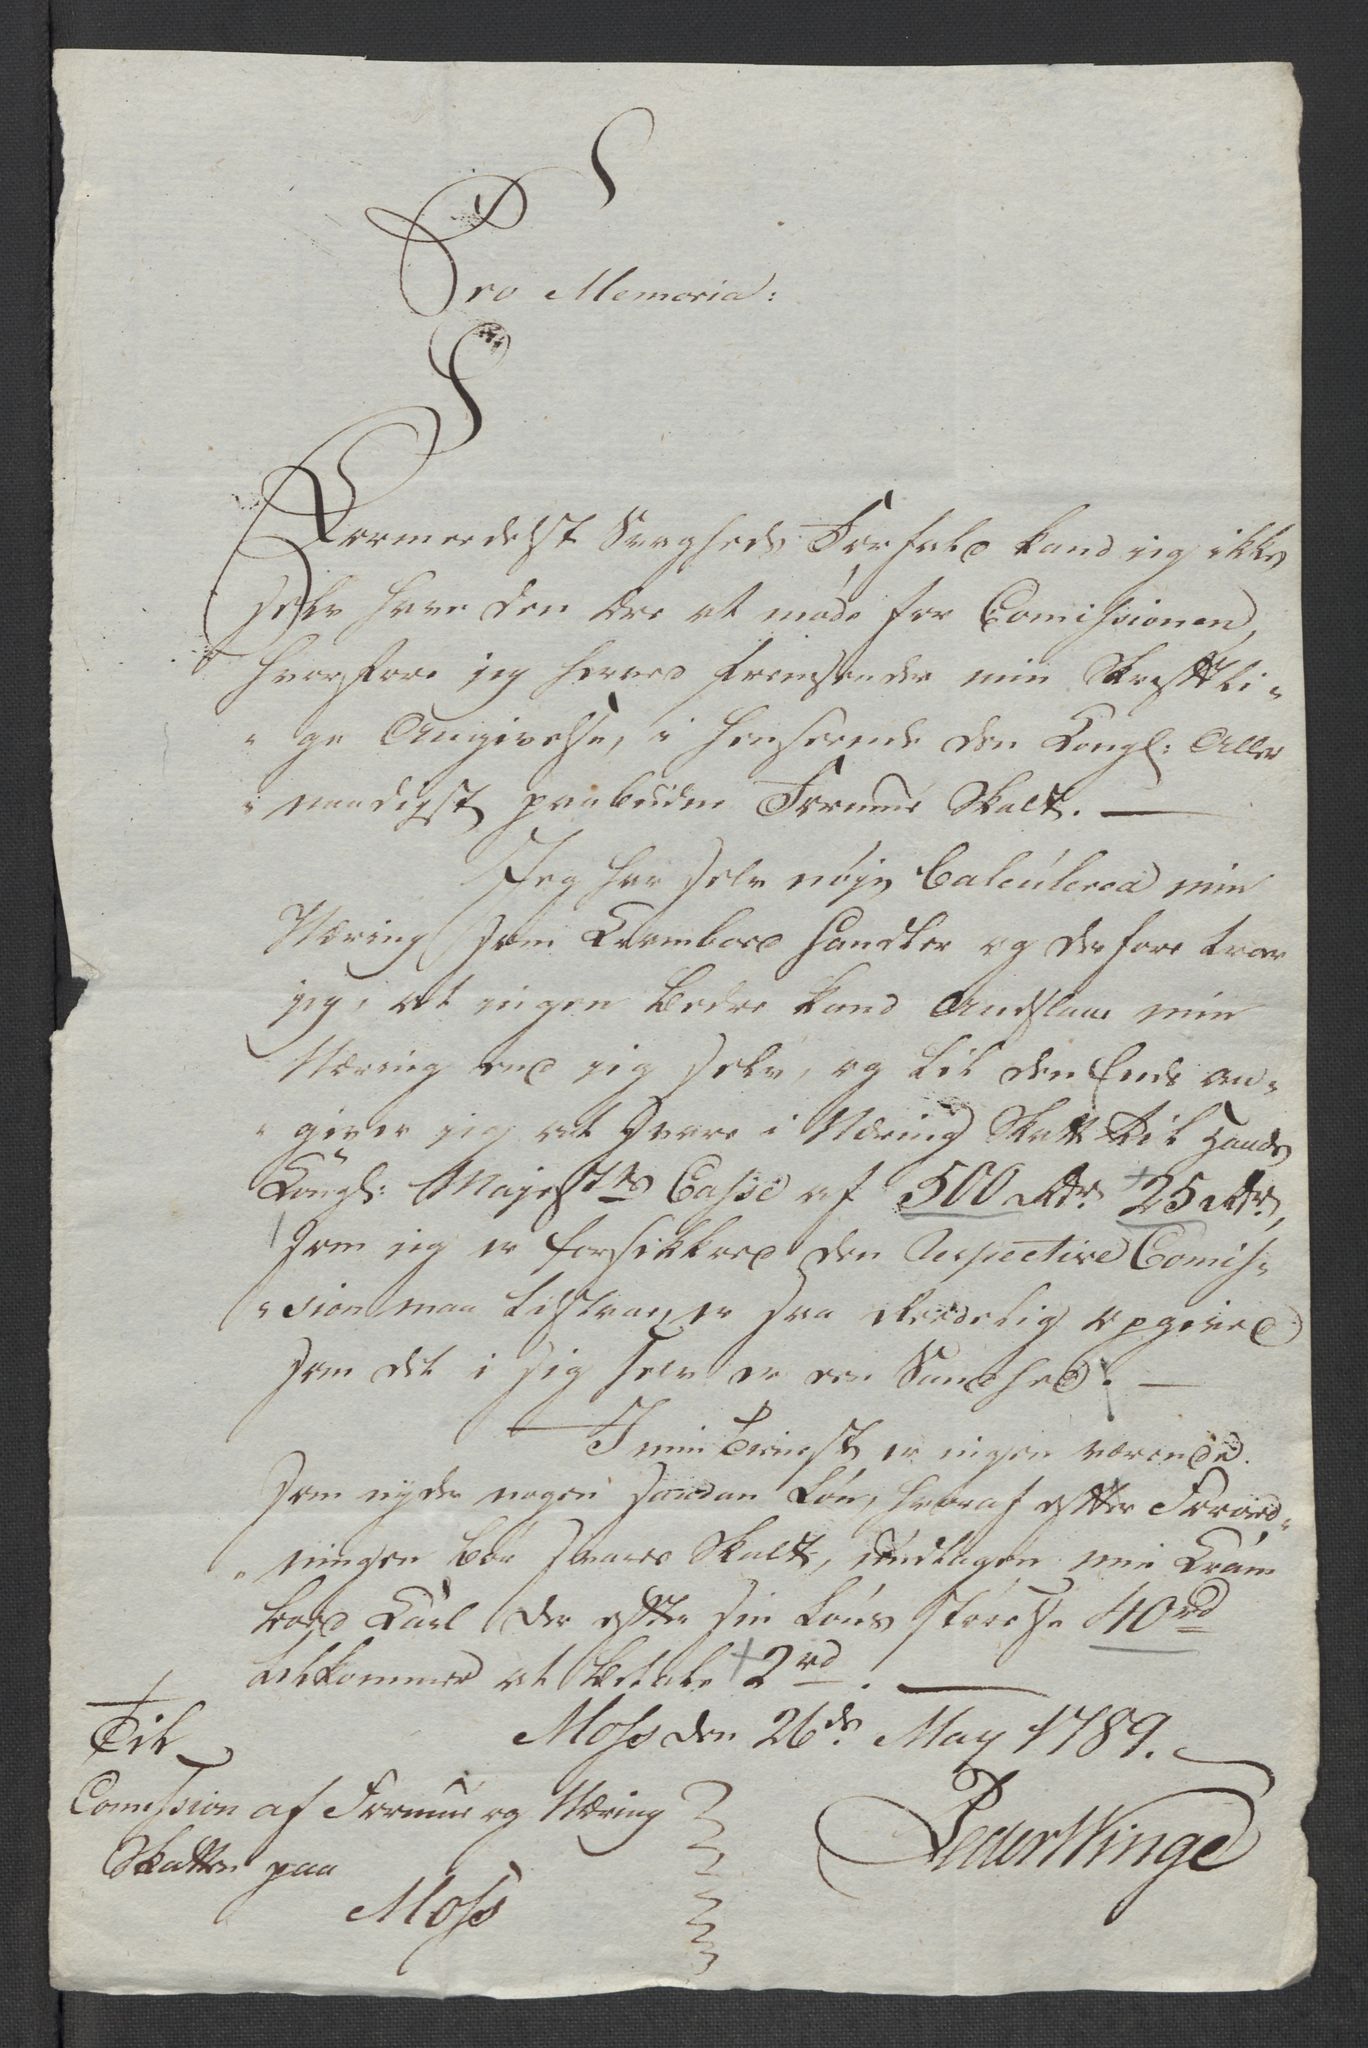 Pro Memoria:
Formedelst Svagheds Forfald kand jeg ikke
selv have den Ære at møde for Comissionen,
hvorfore jeg herved fremsender min Skriftli-
-ge Angivelse, i henseende den Kongl: Aller
-naadigst paabudne Formue Skatt. —
Jeg har selv nøye Calculered min
Næring som Kramboed Handler og derfore troer
jeg, at ingen bedre kand Andslaae min
Næring end jeg selv, og til den Ende an-
-giver jeg at svare i Næring Skatt til Hands
Kongl: Majestts Casse af 500 Rdr. 25 Rdr,
som jeg er forsikkred den Respective Comis-
-sion maa tilstaa, er saa Reedelig opgived
som det i sig selv er en Sandhed. —
I min Tieniste er ingen værende
som nyder nogen saadan Løn, hvoraf efter Forord-
-ningen bør svares Skatt, undtagen min Kram
boed Karl der efter sin Løns størrelse 40 rd
tilkommer at betale 2 rd. —
Moss den 26de May 1789.
Til
Comission af Formue og Næring
Skatten paa
Moss
Peder Winge